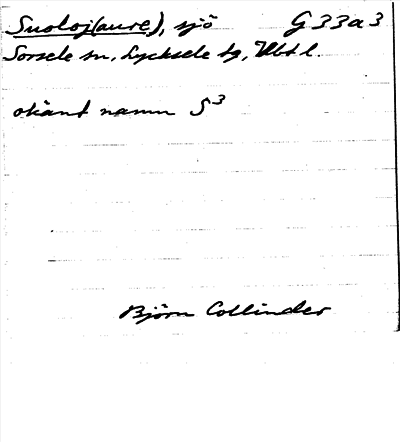 Suoloj(aure), sjö G 33a3
Sorsele sn, Lycksele tg, Vbtl.
okänt namn S³
Björn Collinder